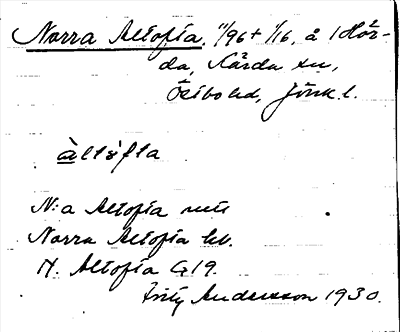 Norra Altofta, 11/96 + 1/16, å 1 Hår-
da, Kärda sn,
Östbo hd, Jönk. l.
àltòfta
N:a Altofta
Norra Altofta
N. Altofta G 19.
Fritz Andersson 1930.